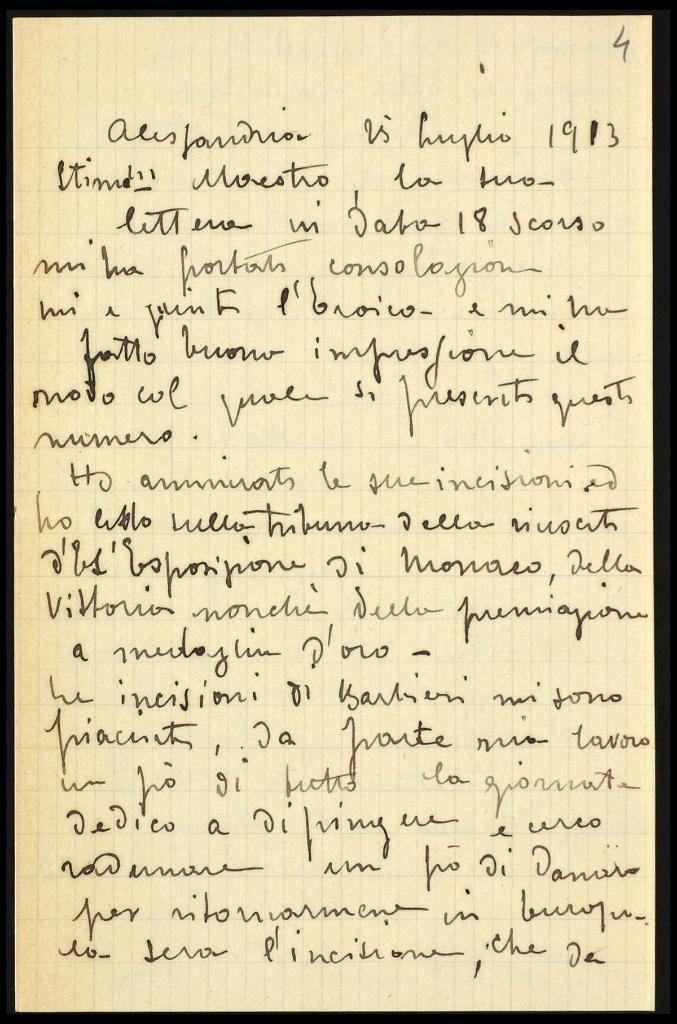 4
Alessandria 25 Luglio 1913
Stimat.mo Maestro, la sua
lettera in data 18 scorso
mi ha portato consolazione
mi è giunto l'Eroica e mi ha
fatto buona impressione il
modo col quale si presenta questo
numero.
Ho ammirato le sue incisioni ed
ho letto sulla tribuna della riuscita
dell'Esposizione di Monaco, della
Vittoria nonchè della premiazione
a medaglia d'oro –
Le incisioni di Barbieri mi sono
piaciute, da parte mia lavoro
un pò di tutto la giornata
dedico a dipingere e cerco
radunare un pò di danaro
per ritornarmene in Europa.
la sera l'incisione, che da